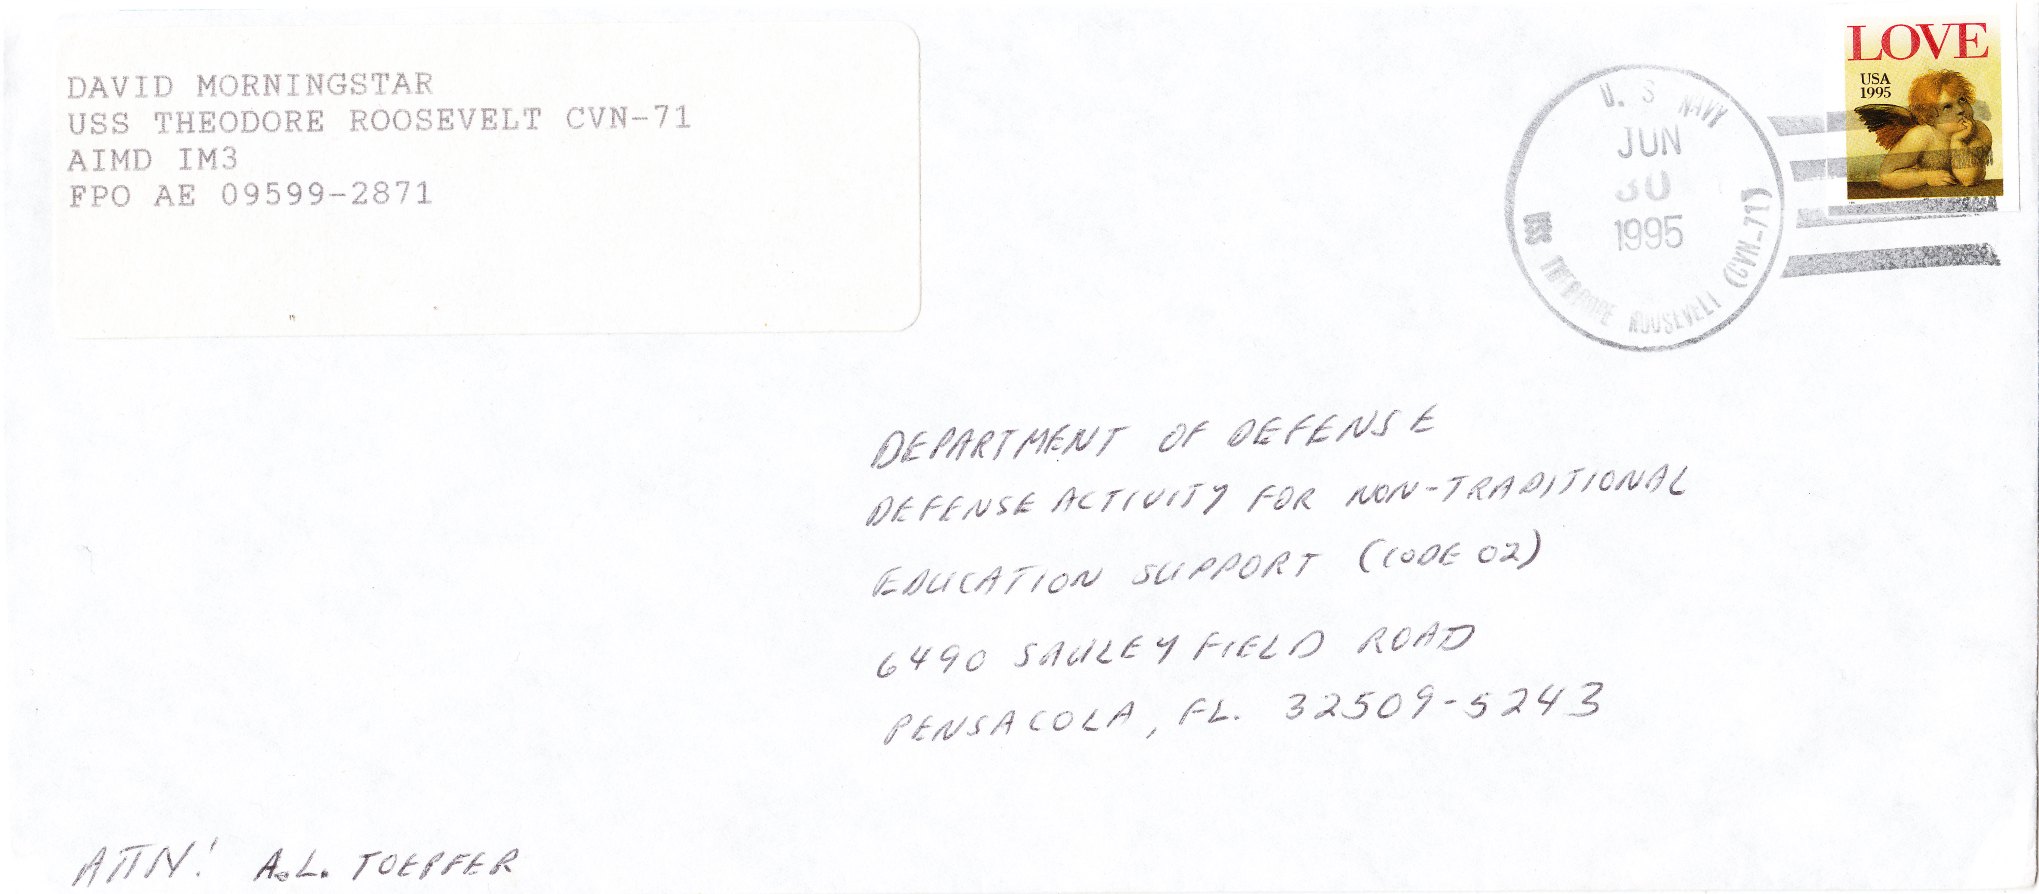 DAVID MORNINGSTAR
USS THEODORE ROOSEVELT CVN-71
AIMD IM3
FPO AE 09599-2871
U. S. NAVY
JUN
30
1995
USS THEODORE ROOSEVELT (CVN-71)
LOVE
USA
1995
DEPARTMENT OF DEFENSE
DEFENSE ACTIVITY FOR NON-TRADITIONAL
EDUCATION SUPPORT (CODE 02)
6490 SAULEY FIELD ROAD
PENSACOLA, FL. 32509-5243
ATTN! A.L. TOEPFER